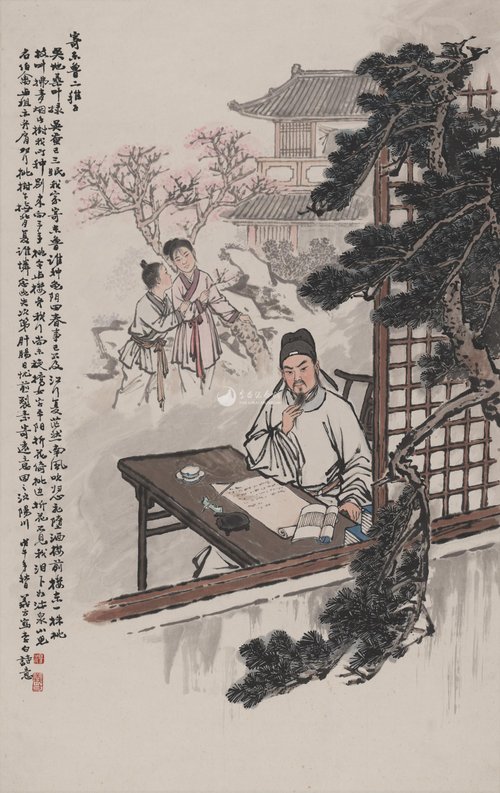 寄东鲁二稚子
吴地桑叶绿吴蚕已三眠我家寄东鲁谁种龟阴田春事已不及江行复茫然南风吹归心飞堕酒楼前楼东一株桃
枝叶拂青烟此树我所种别来向三年桃今与楼齐我行尚未旋娇女字平阳折花倚桃边折花不见我泪下如流泉小儿
名伯禽与姐亦齐肩双行桃树下抚背复谁怜念此失次第肝肠日忧煎裂素寄远意因之汶阳川 戊午冬 写李白诗意